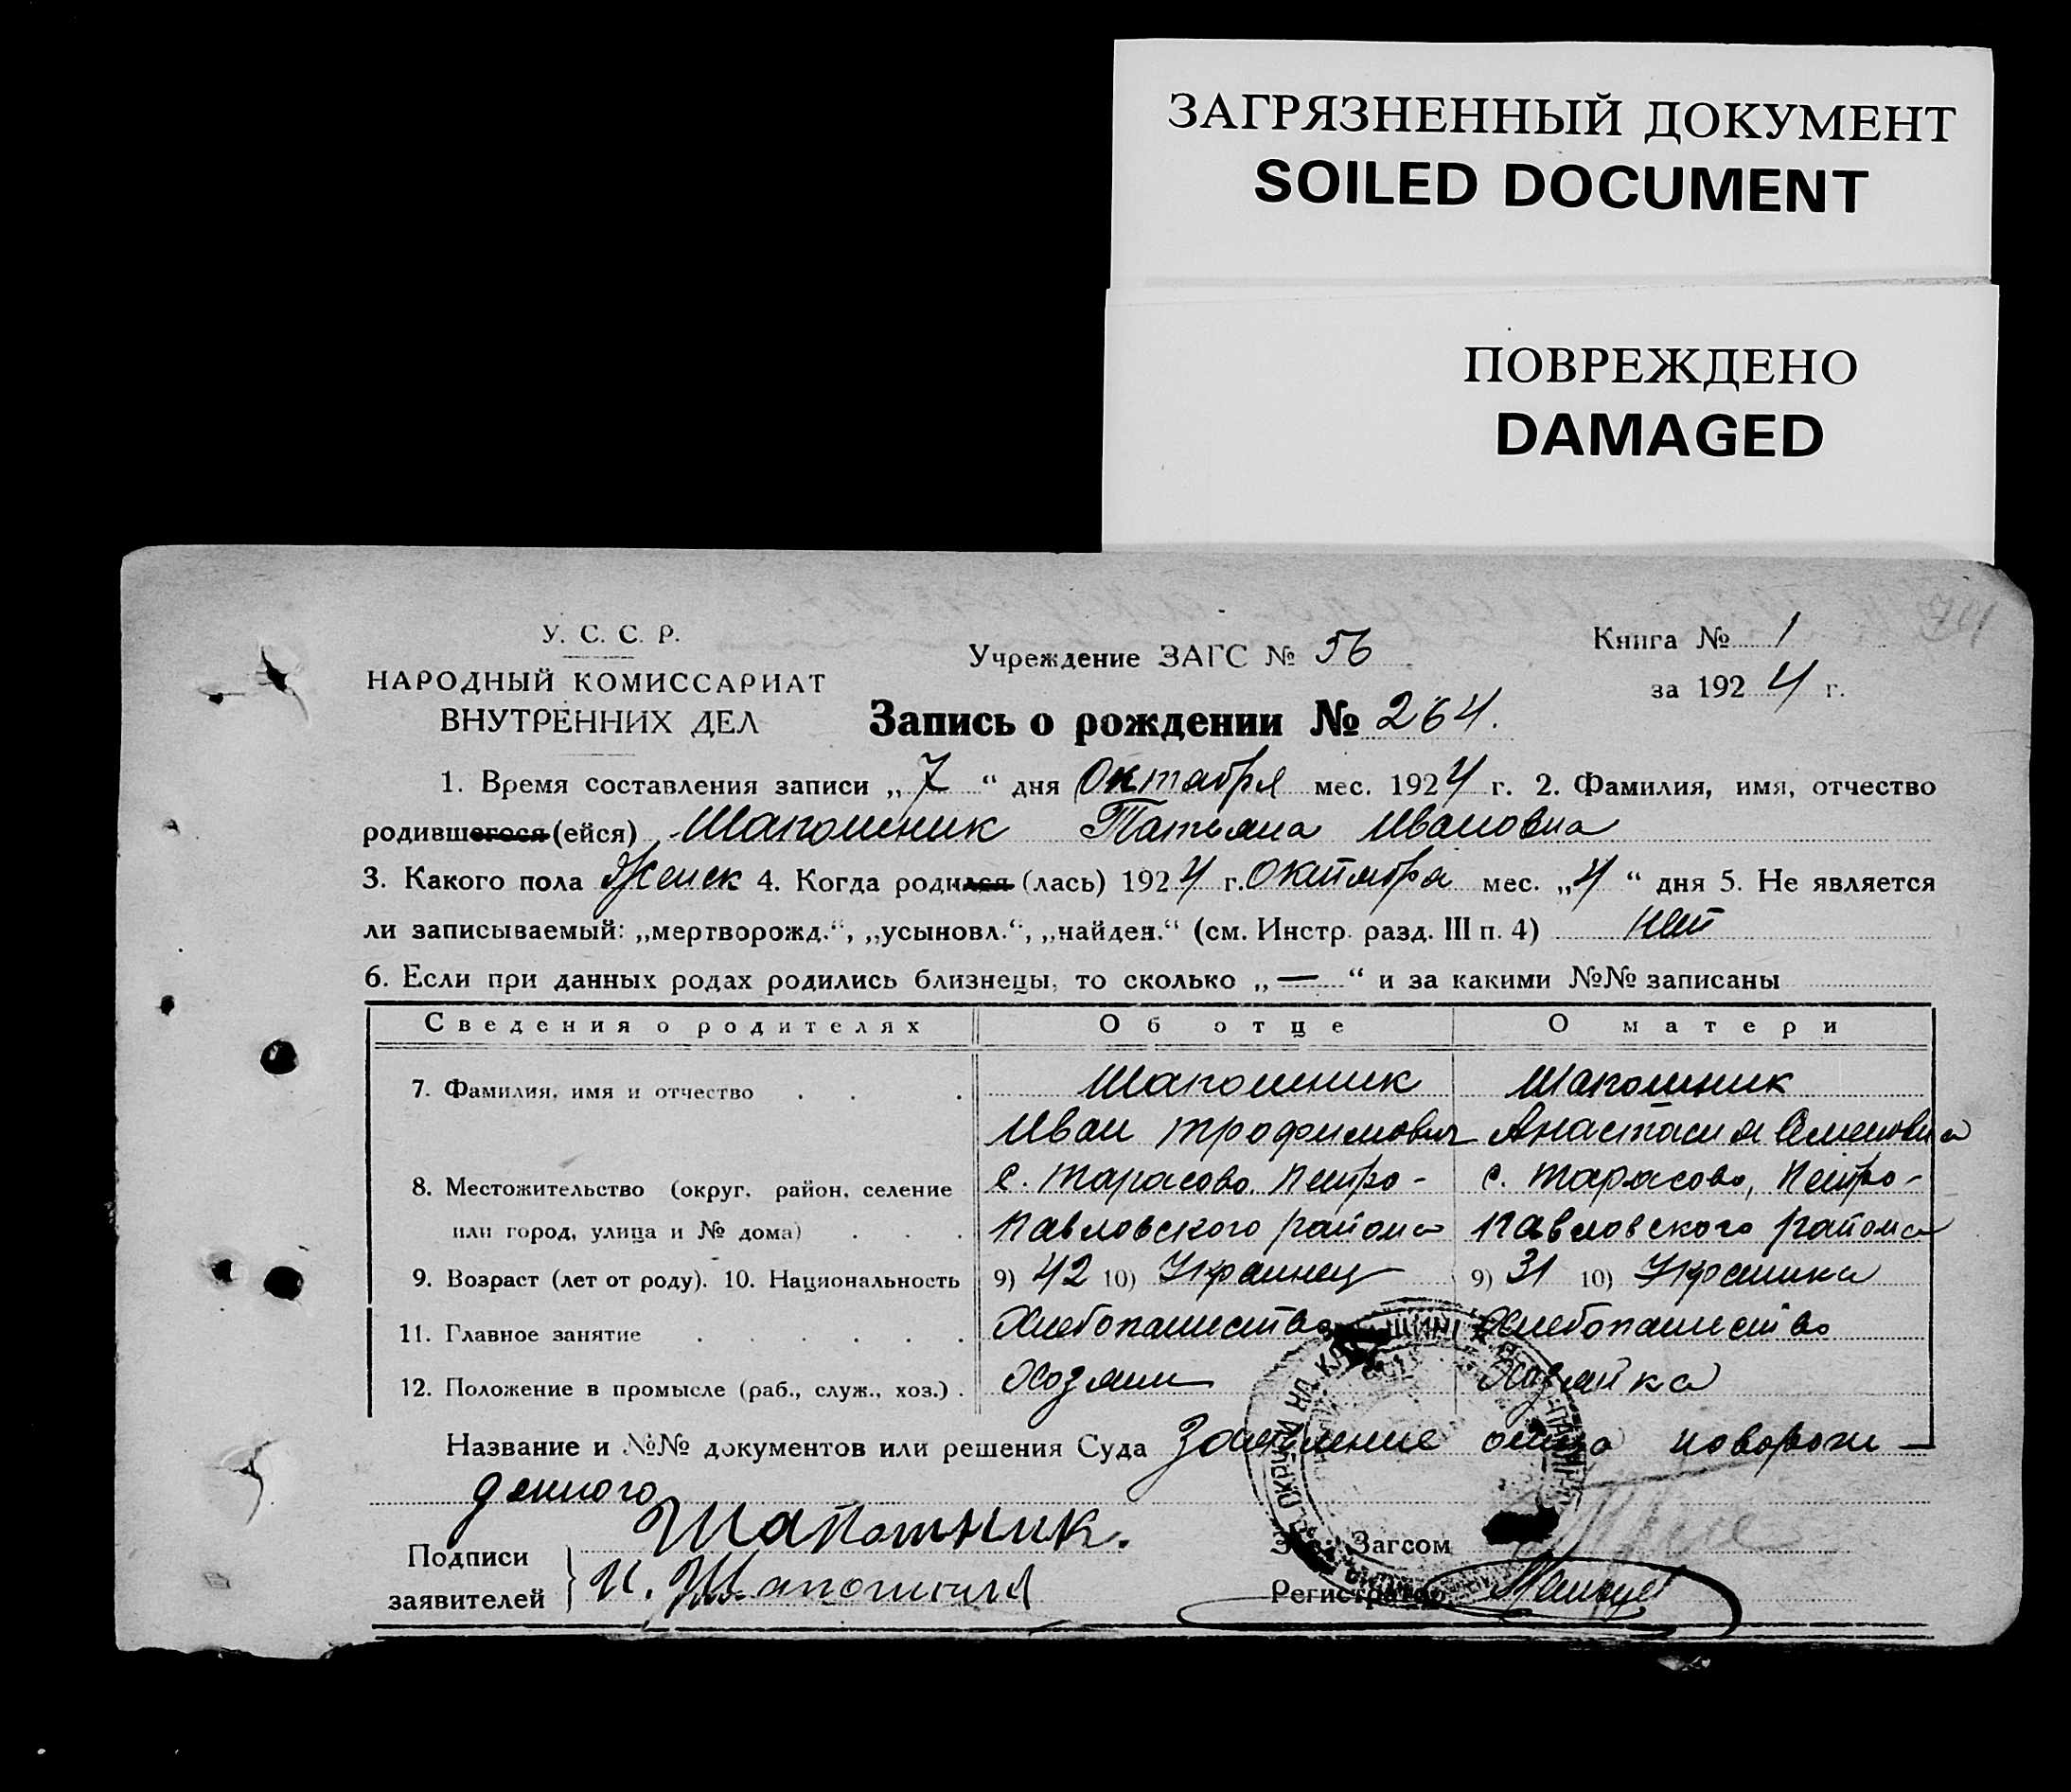 ЗАГРЯЗНЕННЫЙ ДОКУМЕНТ
SOILED DOCUMENT
ПОВРЕЖДЕНО
DAMAGED
У. С. С. Р.
НАРОДНЫЙ КОМИССАРИАТ
ВНУТРЕННИХ ДЕЛ
Учреждение ЗАГС № 56
Книга № 1
за 1924 г.
Запись о рождении № 264.
1. Время составления записи „7“ дня Октября мес. 1924 г. 2. Фамилия, имя, отчество
родившегося (ейся) Шапошник Татьяна Ивановна
3. Какого пола Женск 4. Когда родился (лась) 1924 г. октября мес. „4“ дня 5. Не является
ли записываемый: „мертворожд.“, „усыновл.“, „найден.“ (см. Инстр. разд. III п. 4) нет
6. Если при данных родах родились близнецы, то сколько „—“ и за какими №№ записаны
Сведения о родителях Об отце О матери
7. Фамилия, имя и отчество Шапошник Шапошник
Иван Трофимович Анастасия Семеновна
8. Местожительство (округ, район, селение с. Тарасово, Петро- с. Тарасово, Петро-
или город, улица и № дома) Павловского района Павловского района
9. Возраст (лет от роду). 10. Национальность 9) 42 10) Украинец 9) 31 10) Украинка
11. Главное занятие Хлебопашество Хлебопашество
12. Положение в промысле (раб., служ., хоз.) Хозяин Хозяйка
Название и №№ документов или решения Суда Заявление отца новорож-
денного
Подписи
заявителей
Шапошник.
И. Шапошник
Загсом
Регистратор